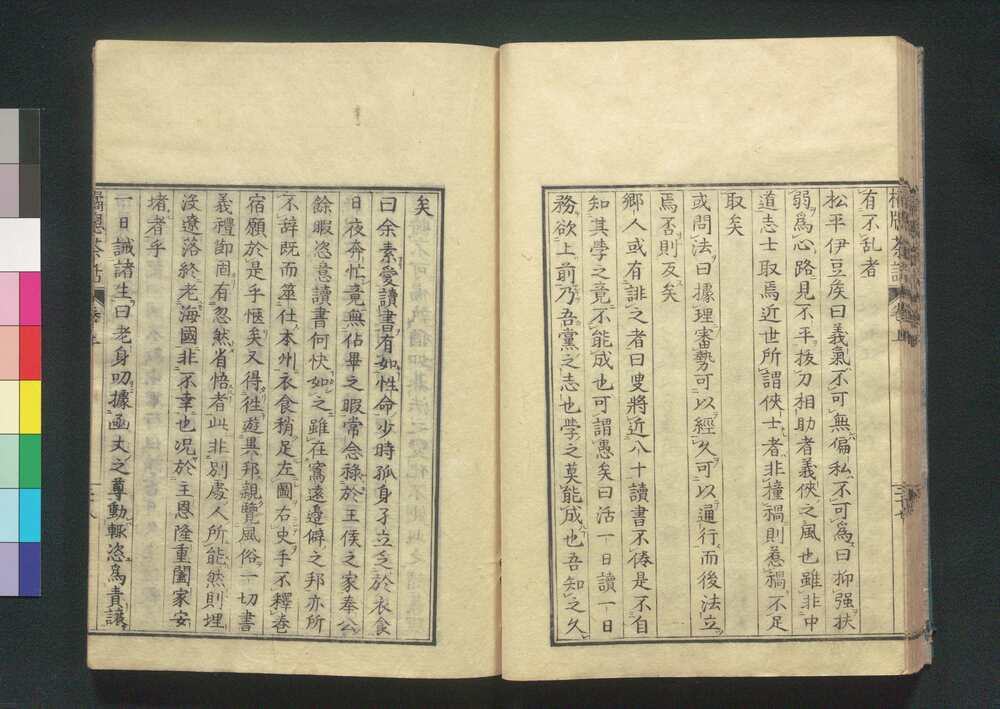 橘牕茶話 卷上
有不乱者
松平伊豆矦曰義氣不可無偏私不可爲曰抑强扶
弱爲心路見不平拔刀相助者義俠之風也雖非中
道志士取焉近世所謂俠士者非撞禍則惹禍不足
取矣
或問法曰據理審勢可以經久可以通行而後法立
焉否則反矣
鄉人或有誹之者曰叟將近八十讀書不倦是不自
知其學之竟不能成也可謂愚矣曰活一日讀一日
務欲上前乃吾黨之志也學之莫能成也吾知之久
矣
曰余素愛讀書有如性命少時孤身孑立乏於衣食
日夜奔忙竟無佔畢之暇常念祿於王侯之家奉公
餘暇恣意讀書何快如之雖在窵遠邊僻之邦亦所
不辭既而筮仕本州衣食稍足左圖右史手不釋卷
宿願於是乎愜矣又得徃遊異邦親覽風俗一切書
義禮節固有忽然省悟者此非別處人所能然則埋
沒遼落終老海國非不幸也况於主恩隆重闔家安
堵者乎
一日誡諸生曰老身叨據函丈之尊動輒恣爲責讓
橘牕茶話